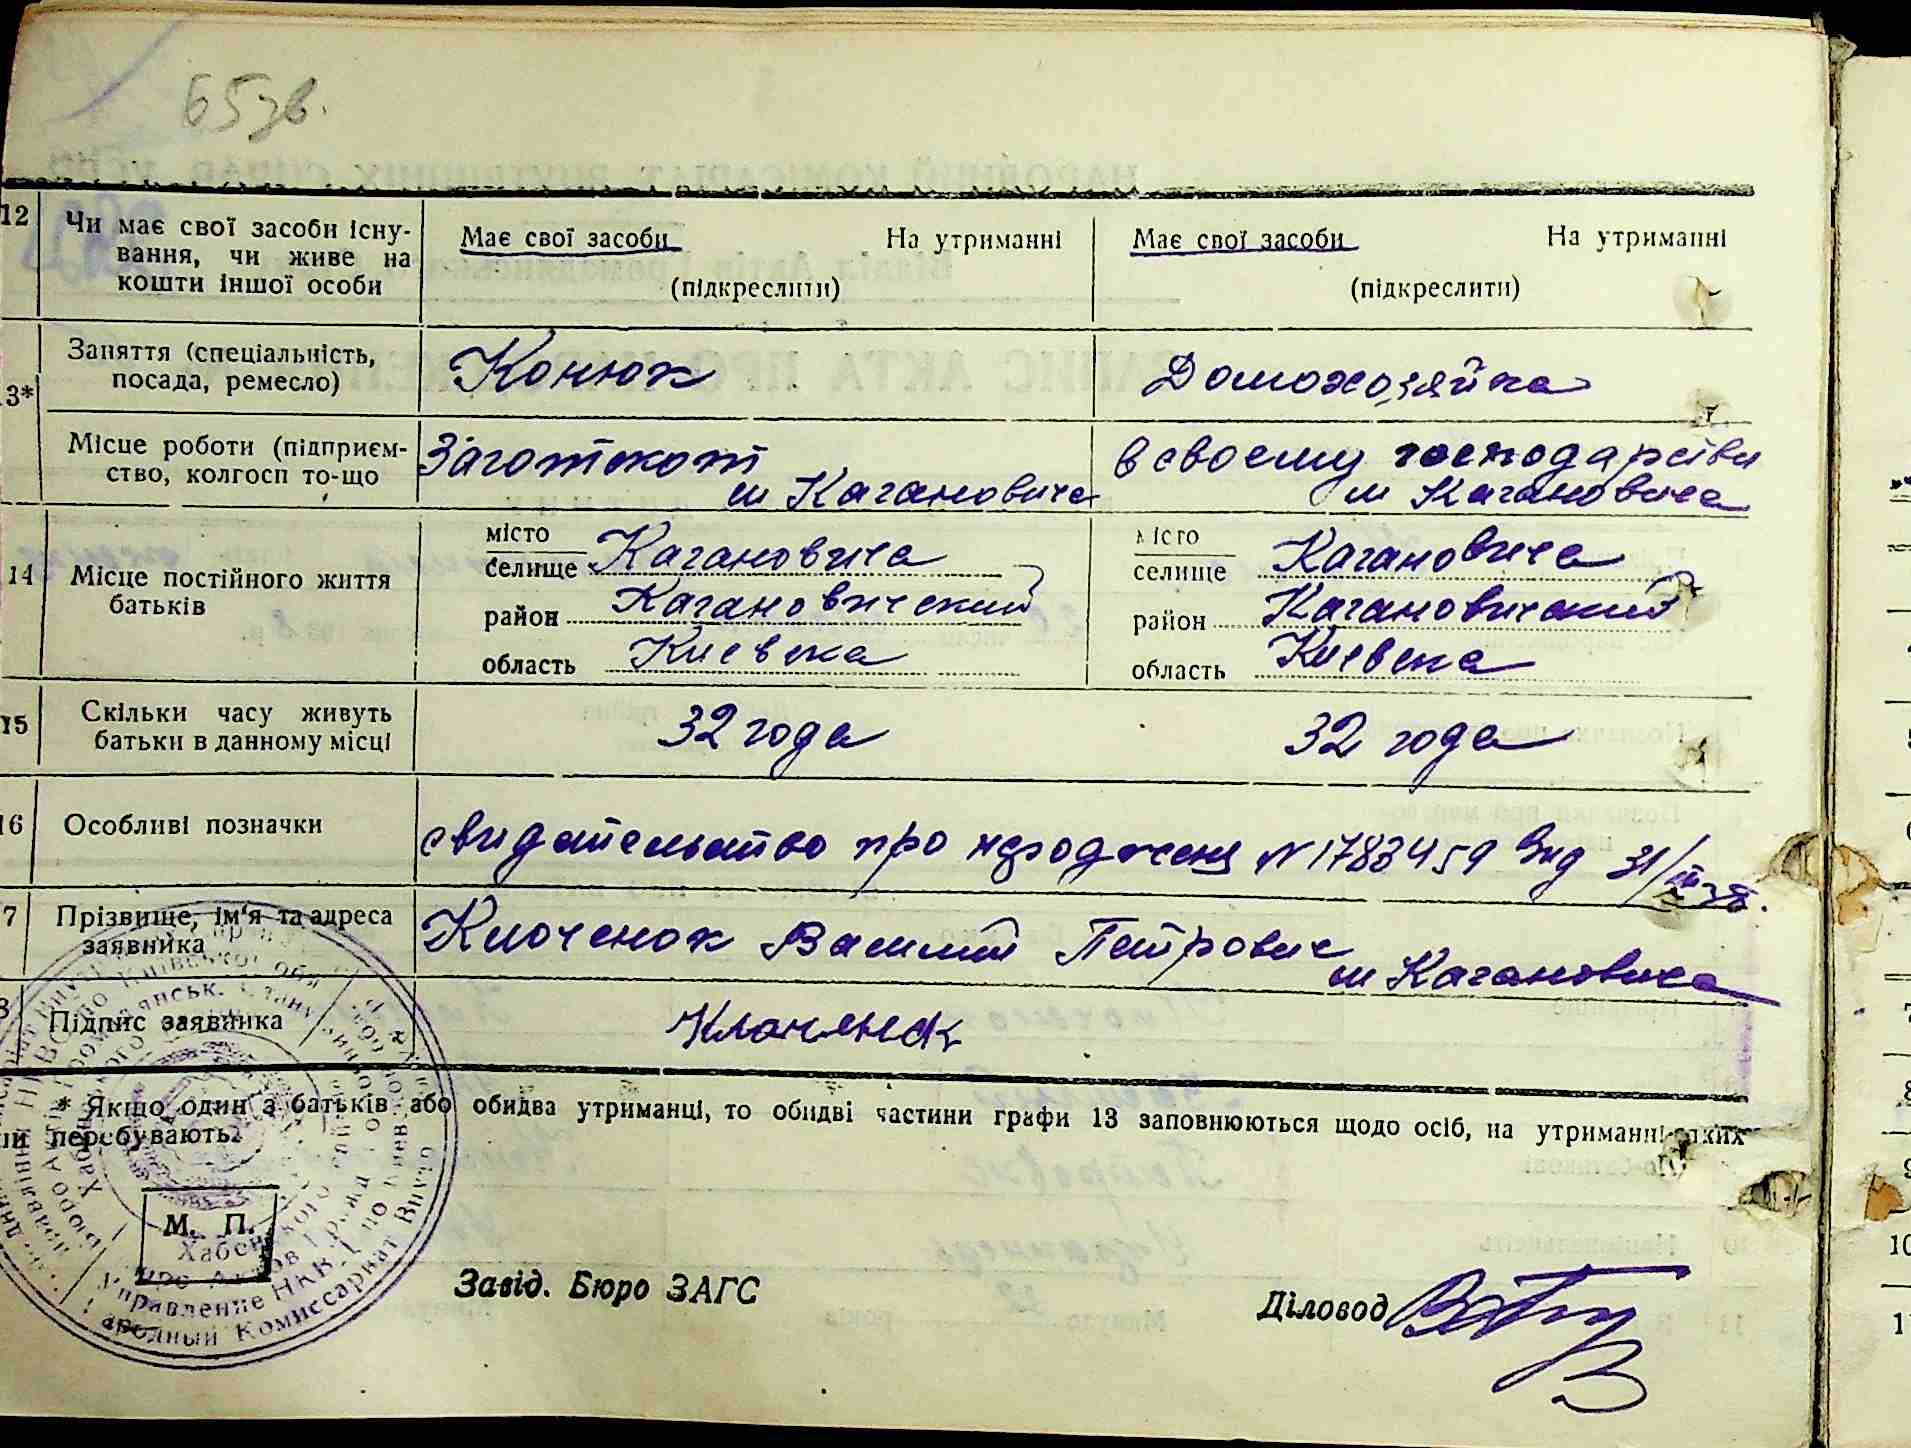 65 зв.
12 Чи має свої засоби існу-
вання, чи живе на
кошти іншої особи
Має свої засоби На утриманні
(підкреслити)
Має свої засоби На утриманні
(підкреслити)
3* Заняття (спеціальність,
посада, ремесло)
Конюх
Домохозяйка
Місце роботи (підприєм-
ство, колгосп то-що
Заготскот
м Кагановича
в своему господарстви
м Кагановича
14 Місце постійного життя
батьків
місто
селище Кагановича
район Кагановичский
область Киевска
місто
селище Кагановича
район Кагановичский
область Киевска
15 Скільки часу живуть
батьки в данному місці
32 года
32 года
16 Особливі позначки
свидательство про народжени N 1783459 Вид 31/III 38.
7 Прізвище, ім'я та адреса
заявника
Клоченок Василий Петрович
м Кагановича
8 Підпис заявника
Клоченок
* Якщо один з батьків або обидва утриманці, то обидві частини графи 13 заповнюються щодо осіб, на утриманні яких
ни перебувають.
М. П.
Управление НКВД по
Народный Комиссариат Внутр
Завід. Бюро ЗАГС
Діловод